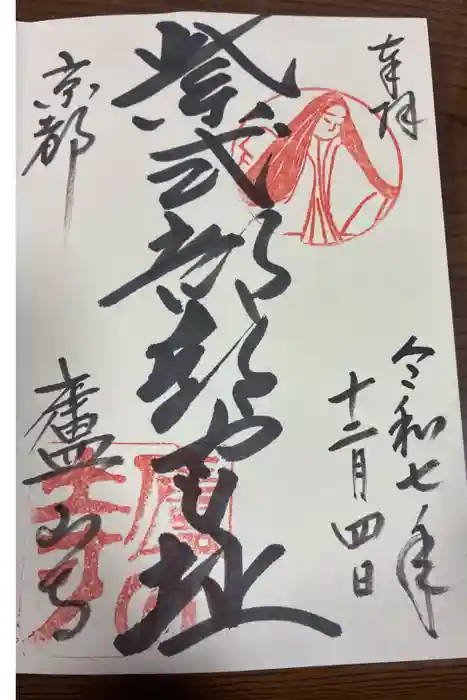 奉拝
令和七年
十二月四日
紫式部邸宅址
京都
廬山寺